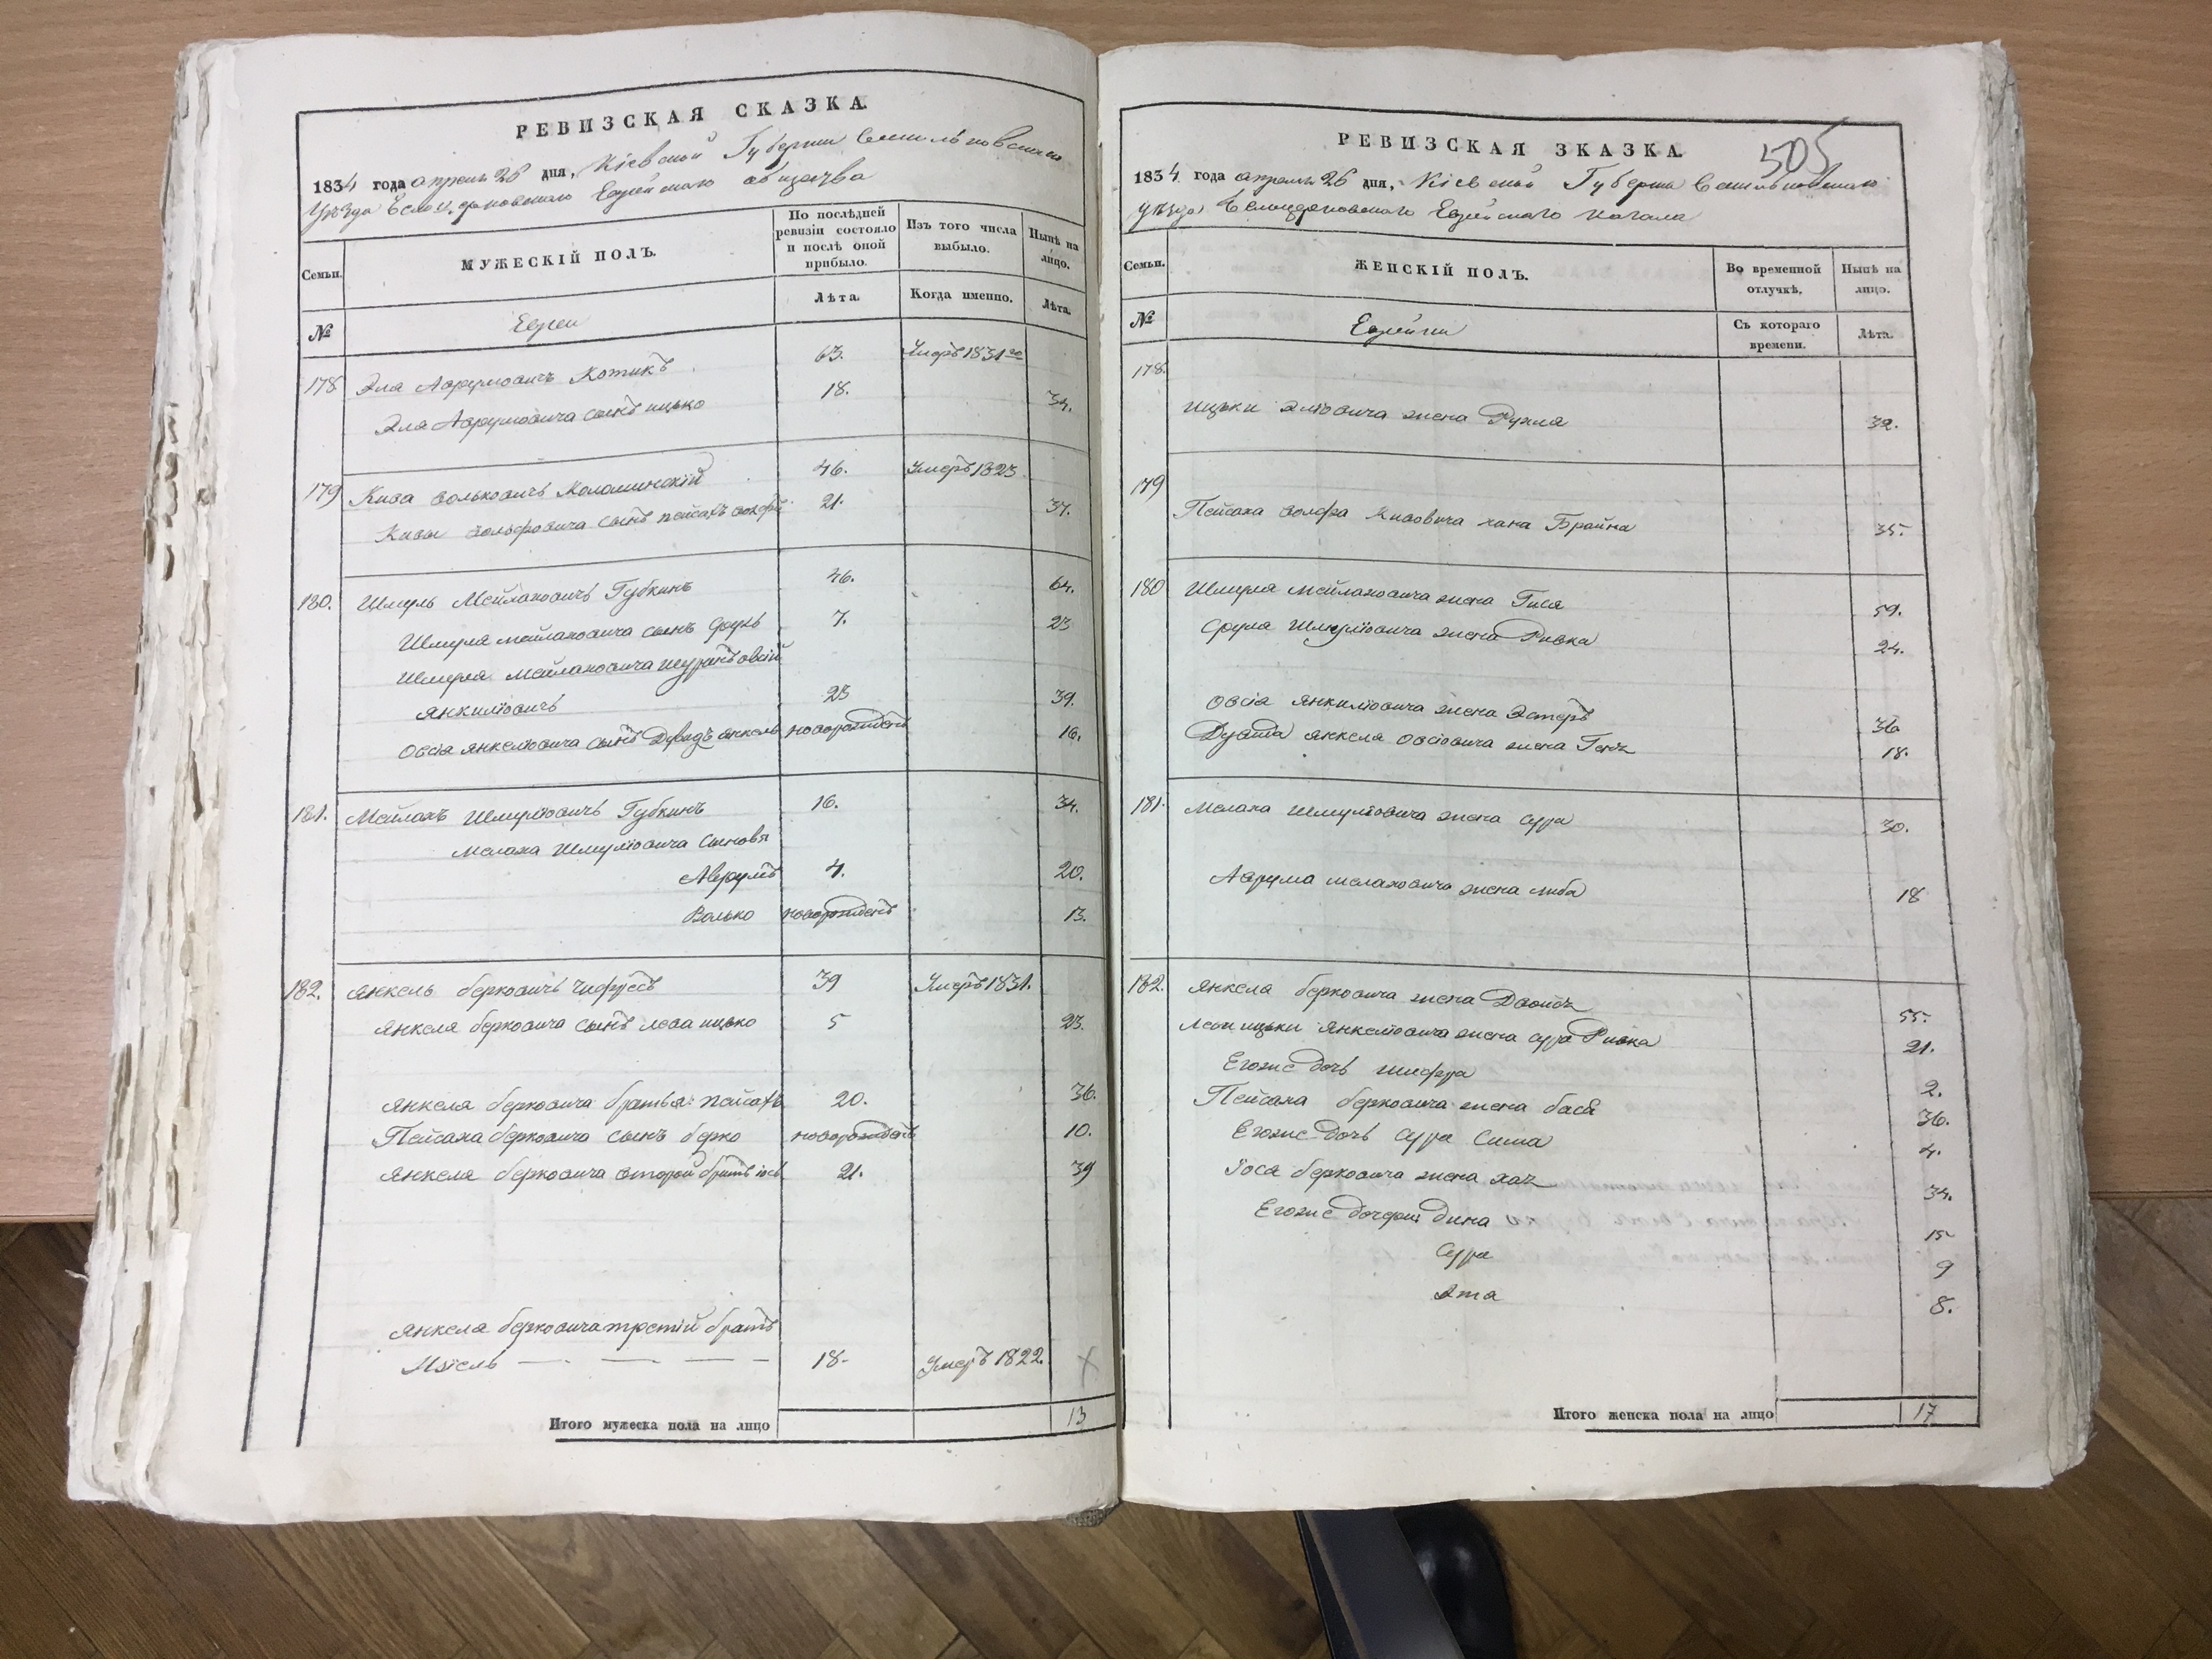 РЕВИЗСКАЯ СКАЗКА.
1834 года апреля 26 дня, Кіевской Губерніи Васильковскаго
Уѣзда Белоцерковскаго Еврейскаго общества
Семьи.
МУЖЕСКІЙ ПОЛЪ.
По послѣдней ревизіи состояло и послѣ оной прибыло.
Изъ того числа выбыло.
Нынѣ на лицо.
№
Евреи
Лѣта.
Когда именно.
Лѣта.
178 Эля Аврумовичъ Котикъ 63. Умеръ 1831го
Эля Аврумовича сынъ ицько 18. 34.
179 Кива волькович 46. Умеръ 1823
Кивы вольфовича сынъ пейсахъ 21. 37.
180. Шмуль Мейлаховичъ Губкинъ 46. 64.
Шмуля мейлаховича сынъ сруль 7. 23
Шмуля мейлаховича шуринъ овсій
янкиліовичь 23 39.
Овсія янкеліовича сынъ Давидъ янкель новорожденъ 16.
181. Мейлахъ Шмуліовичъ Губкинъ 16. 34.
мелаха Шмуліовича сыновя
Аврумъ 4. 20.
Волько новорожденъ 13.
182. янкель берковичъ 39 Умеръ 1831.
янкеля берковича сынъ лева ицько 5 23.
янкеля берковича братья: пейсахъ 20. 36.
Пейсаха берковича сынъ берко новорожденъ 10.
янкеля берковича второй братъ іось 21. 39
янкеля берковича третій братъ
Мзіель — — — 18- Умеръ 1822. X
Итого мужеска пола на лицо 13
505
РЕВИЗСКАЯ ЗКАЗКА.
1834 года апреля 26 дня, Кіевской Губерніи Васильковскаго
уѣзда Белоцерковскаго Еврейскаго Кагала
Семьи.
ЖЕНСКІЙ ПОЛЪ.
Во временной отлучкѣ.
Нынѣ на лицо.
№
Еврейки
Съ котораго времени.
Лѣта.
178.
ицьки эліовича жена Рухля 32.
179
Пейсаха волфа кивовича жена Брайна 35.
180 Шмуля мейлаховича жена Гися 59.
Сруля Шмуліовича жена Ривка 24.
Овсія янкиліовича жена Эстеръ 36
Дувида янкеля овсіовича жена 18.
181. мелаха Шмуліовича жена сура 30.
Аврума мелаховича жена либа 18
182. янкеля берковича жена Двойся 55.
леви ицьки янкеліовича жена сура Ривка 21.
Егоже дочь шифра 2.
Пейсаха берковича жена бася 36.
Егоже дочь сура сима 4.
Іося берковича жена хая 34.
Егоже дочери: дина 15
сура 9
эта 8.
Итого женска пола на лицо 17